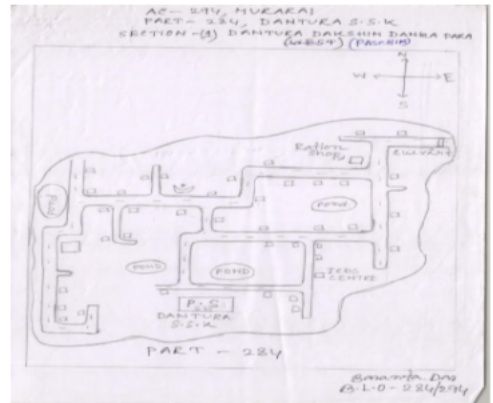 AC - 294, MURARAI
PART - 284, DANTURA S.S.K
SECTION -(1) DANTURA DAKSHIN DANGA PARA
(WEST) (PASCHIM)
N
W E
S
Ration
Shop
POND
POND
POND
POND
ICDS
CENTRE
P.S
DANTURA
S.S.K
PART - 284
Das
B.L.O - 284/294